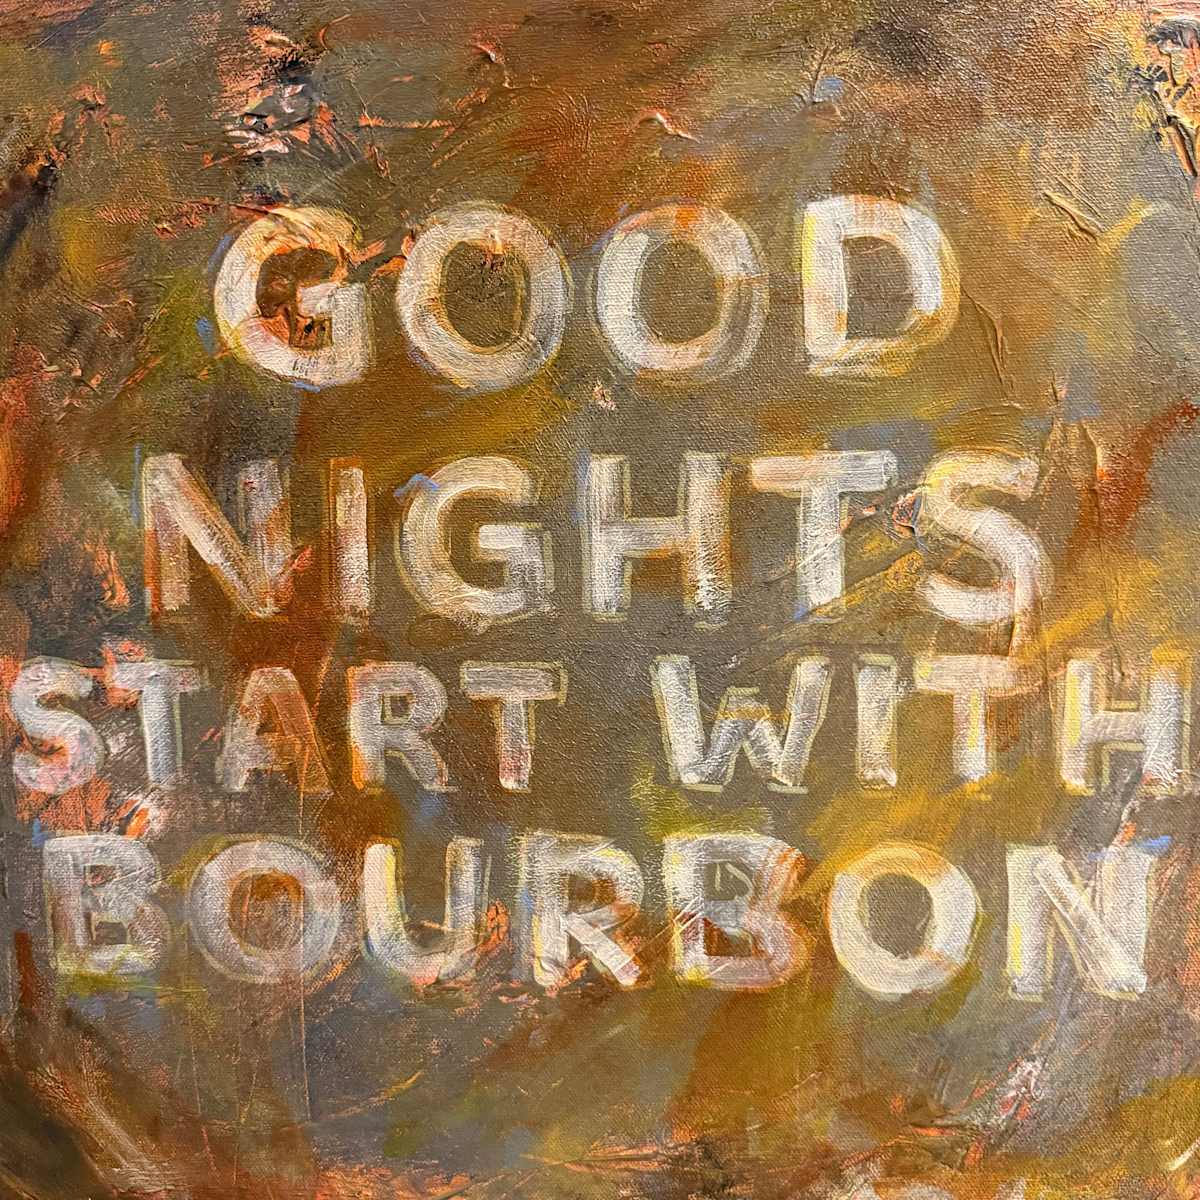 GOOD
NIGHTS
START WITH
BOURBON